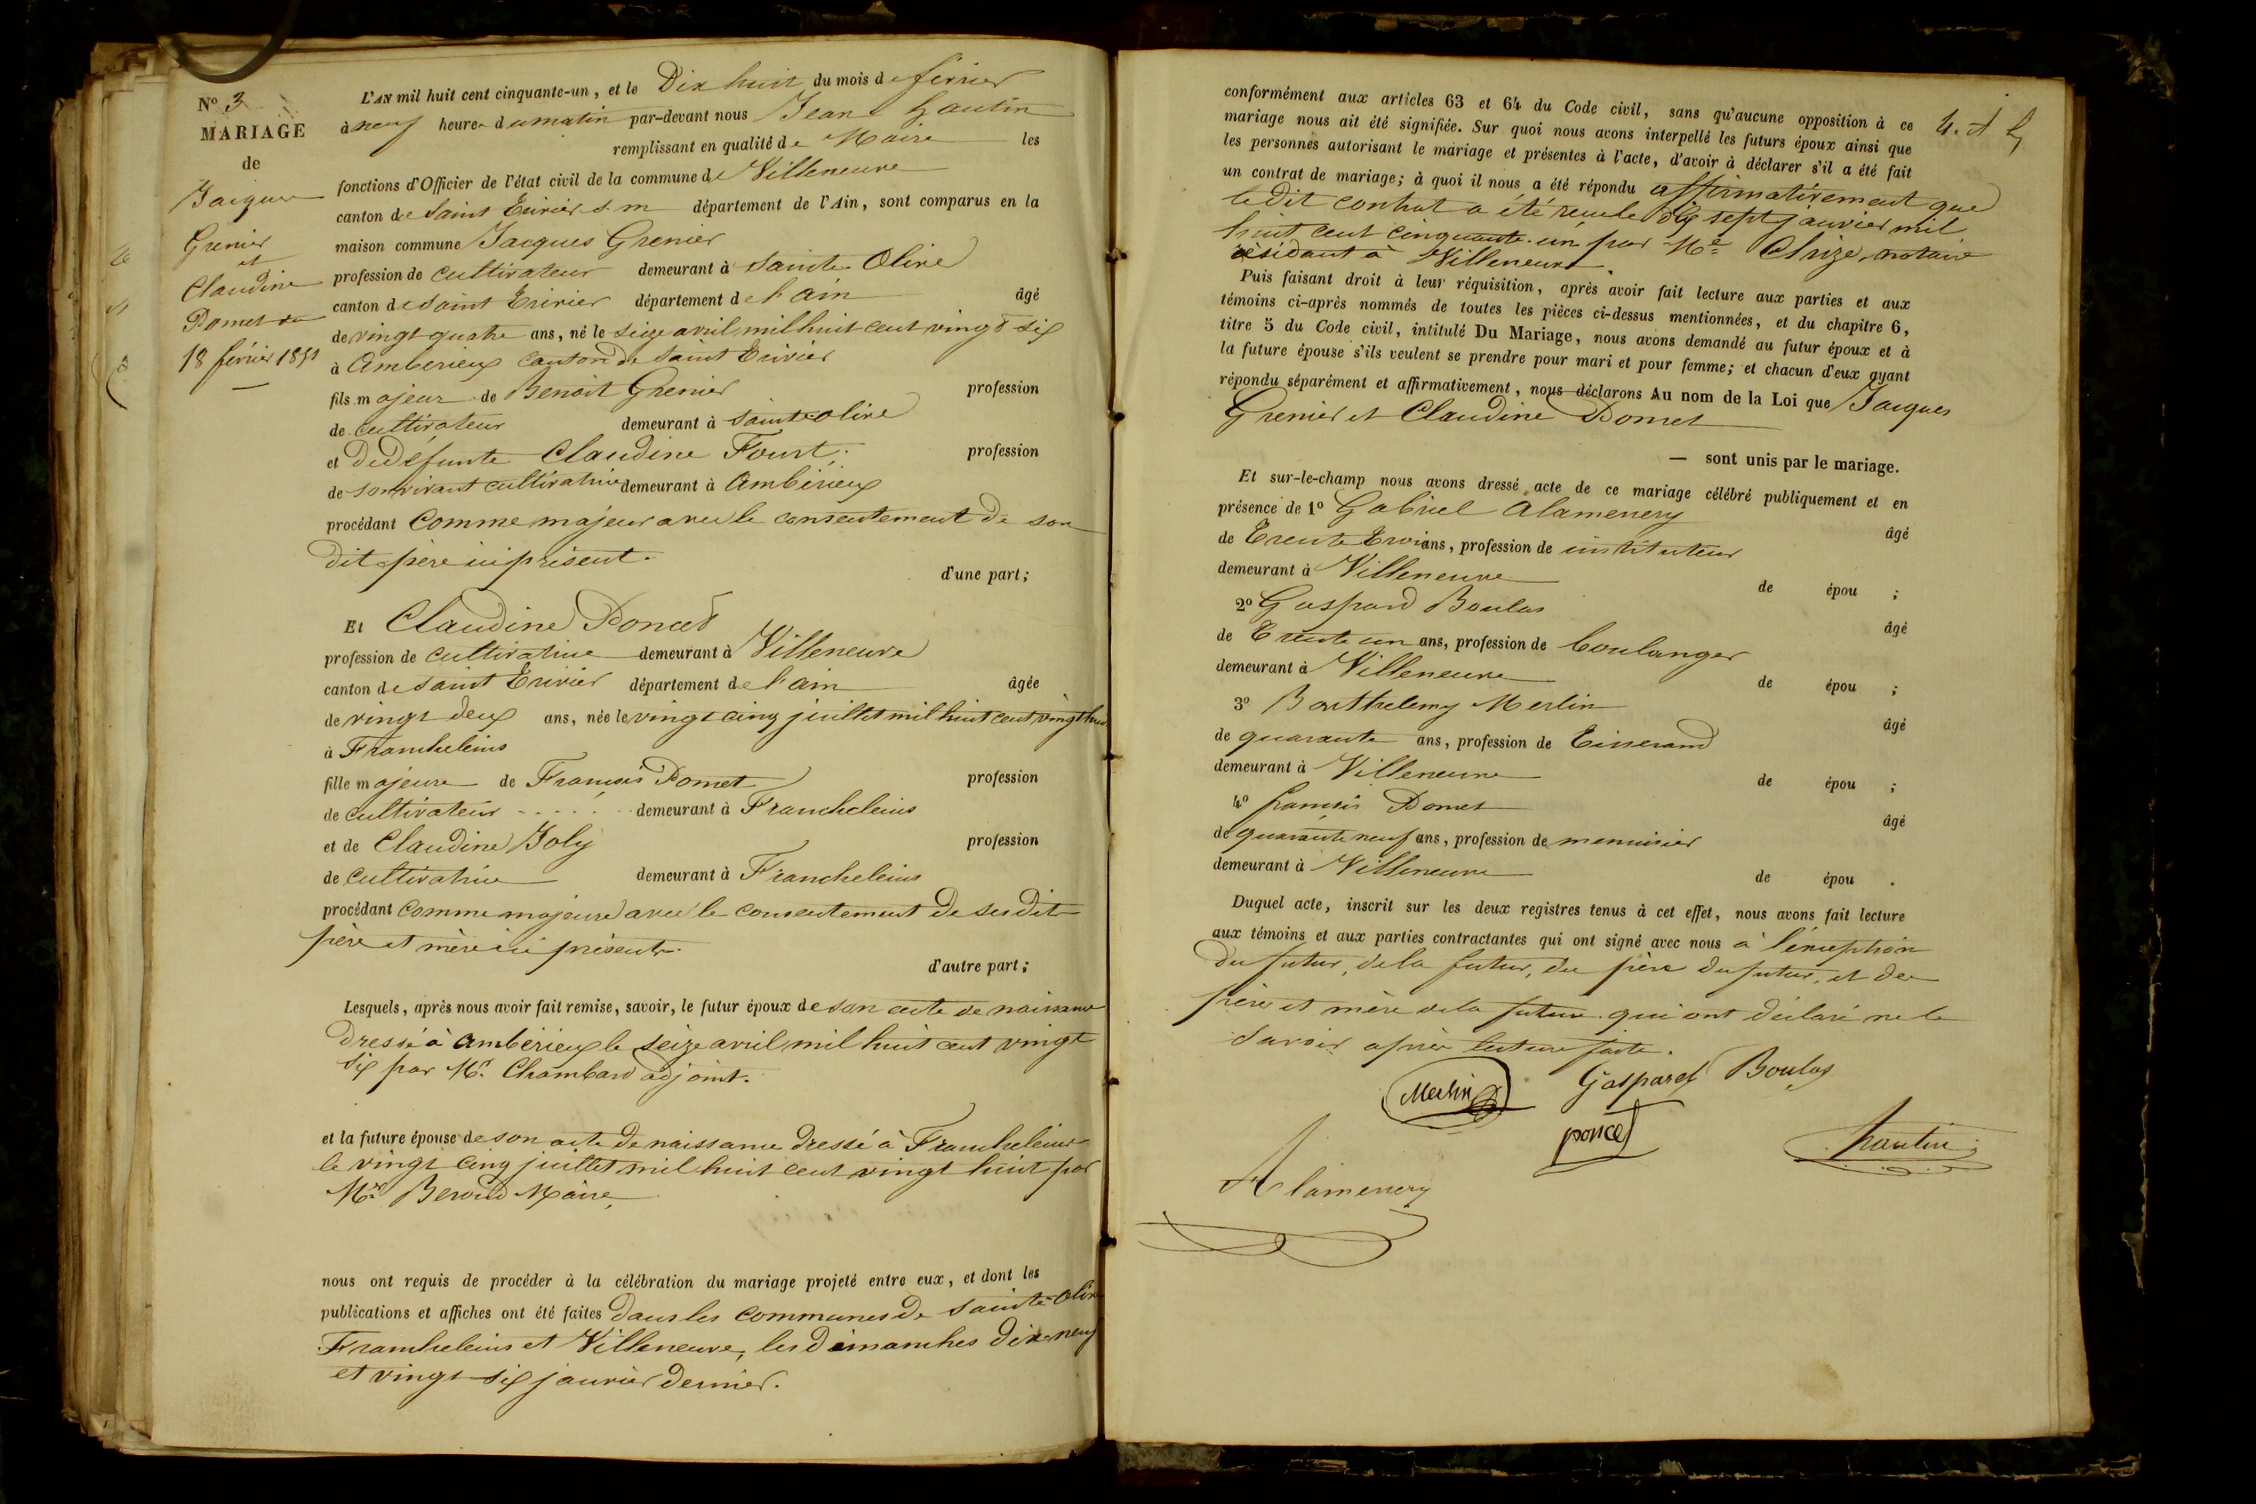 N° 3
MARIAGE
de
Jacques
Grenier
et
Claudine
Poncet
18 février 1851
L'AN mil huit cent cinquante-un, et le Dix huit du mois de février
à neuf heures du matin par-devant nous Jean
remplissant en qualité de Maire les
fonctions d'Officier de l'état civil de la commune de Villeneuve
canton de Saint Trivier s. m département de l'Ain, sont comparus en la
maison commune Jacques Grenier
profession de cultivateur demeurant à Sainte Olive
canton de Saint Trivier département de l'ain âgé
de vingt quatre ans, né le seize avril mil huit cent vingt six
à Ambérieux canton de Saint Trivier
fils majeur de Benoit Grenier profession
de cultivateur demeurant à Sainte olive
et De défunte Claudine profession
de son vivant cultivatrice demeurant à Ambérieux
procédant Comme majeur avec le consentement de son
dit père ici présent.
d'une part;
Et Claudine Poncet
profession de cultivatrice demeurant à Villeneuve
canton de Saint Trivier département de l'ain âgée
de vingt deux ans, née le vingt cinq juillet mil huit cent vingt huit
à Francheleins
fille majeure de François Poncet profession
de cultivateur demeurant à Francheleins
et de Claudine Joly profession
de cultivatrice demeurant à Francheleins
procédant comme majeure avec le consentement de ses dit
père et mère ici présents.
d'autre part;
Lesquels, après nous avoir fait remise, savoir, le futur époux de son acte de naissance
Dressé à Ambérieux le seize avril mil huit cent vingt
six par Mr. Chambard adjoint.
et la future épouse de son acte de naissance dressé à Francheleins
le vingt cinq juillet mil huit cent vingt huit par
Mr Maire,
nous ont requis de procéder à la célébration du mariage projeté entre eux, et dont les
publications et affiches ont été faites Dans les communes de Sainte Olive
Francheleins et Villeneuve, les dimanches dix neuf
et vingt six janvier dernier.
conformément aux articles 63 et 64 du Code civil, sans qu'aucune opposition à ce
mariage nous ait été signifiée. Sur quoi nous avons interpellé les futurs époux ainsi que
les personnes autorisant le mariage et présentes à l'acte, d'avoir à déclarer s'il a été fait
un contrat de mariage; à quoi il nous a été répondu affirmativement que
le dit contrat a été reçu le dix sept janvier mil
huit cent cinquante-un par Me. notaire
résidant à Villeneuve.
Puis faisant droit à leur réquisition, après avoir fait lecture aux parties et aux
témoins ci-après nommés de toutes les pièces ci-dessus mentionnées, et du chapitre 6,
titre 5 du Code civil, intitulé Du Mariage, nous avons demandé au futur époux et à
la future épouse s'ils veulent se prendre pour mari et pour femme; et chacun d'eux ayant
répondu séparément et affirmativement, nous déclarons Au nom de la Loi que Jacques
Grenier et Claudine Poncet
— sont unis par le mariage.
Et sur-le-champ nous avons dressé acte de ce mariage célébré publiquement et en
présence de 1° Gabriel Alamenery
âgé
de Trente Trois ans, profession de instituteur
demeurant à Villeneuve
de épou ;
2° Gaspard Boulas
âgé
de Trente un ans, profession de boulanger
demeurant à Villeneuve
de épou ;
3° Barthelemy Merlin
âgé
de quarante ans, profession de Tisserand
demeurant à Villeneuve
de épou ;
4° françois Poncet
âgé
de quarante neuf ans, profession de menuisier
demeurant à Villeneuve
de épou .
Duquel acte, inscrit sur les deux registres tenus à cet effet, nous avons fait lecture
aux témoins et aux parties contractantes qui ont signé avec nous à l'éxception
du futur, de la futur, du père du futur, et des
père et mère de la future qui ont déclaré ne le
savoir après lecture faite.
Merlin
Gaspard Boulas
poncet
Alamenery